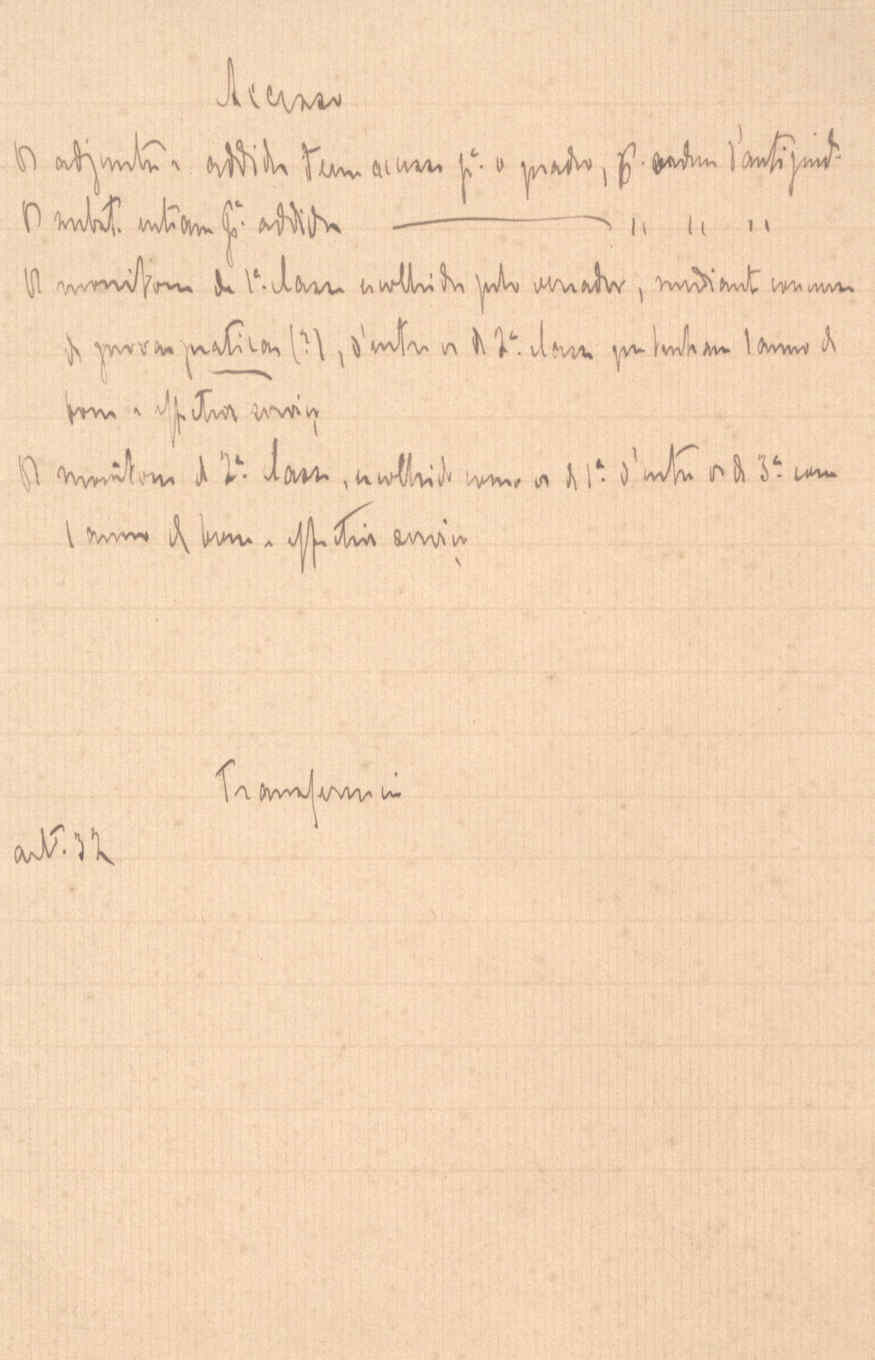 Accesso
Os adjuntos e addidos teem accesso pª. o quadro, p. ordem d'antiguid.
Os subst. entram pª. addidos ——— " " "
Os monitores de 1ª. classe escolhidos pelo vereador, mediante concurso
de provas praticas (?), d'entre os de 2ª. classe que tenham 1 anno de
bom e effectivo serviço
Os monitores de 2ª. classe, escolhidos como os de 1ª. d'entre os de 3ª. com
1 anno de bom e effectivo serviço
Transferencia
art. 32